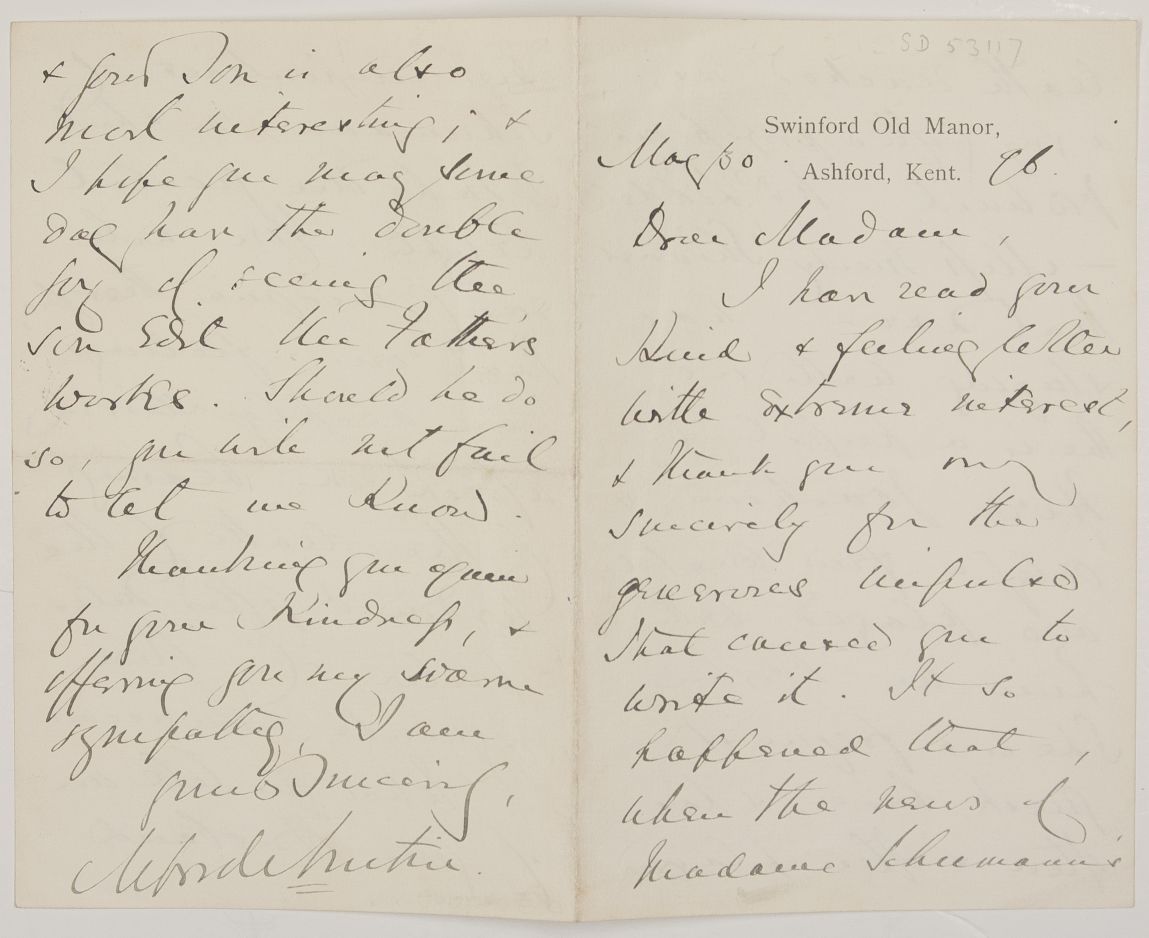 SD 53117
Swinford Old Manor,
May 30. Ashford, Kent. 96.
Dear Madam,
I have read your
Kind & feeling letter
with extreme interest,
& thank you very
sincerely for the
generous impulse
that caused you to
write it. It so
happened that,
when the news of
Madame Schumann's
& your Son is also
most interesting; &
I hope you may some
day have the double
joy of seeing the
son Edit the Father's
works. Should he do
so, you will not fail
to let me Know.
Thanking you again
for your Kindness, &
offering you my warm
sympathy, I am
yours Sincerely,
Alfred Austin.